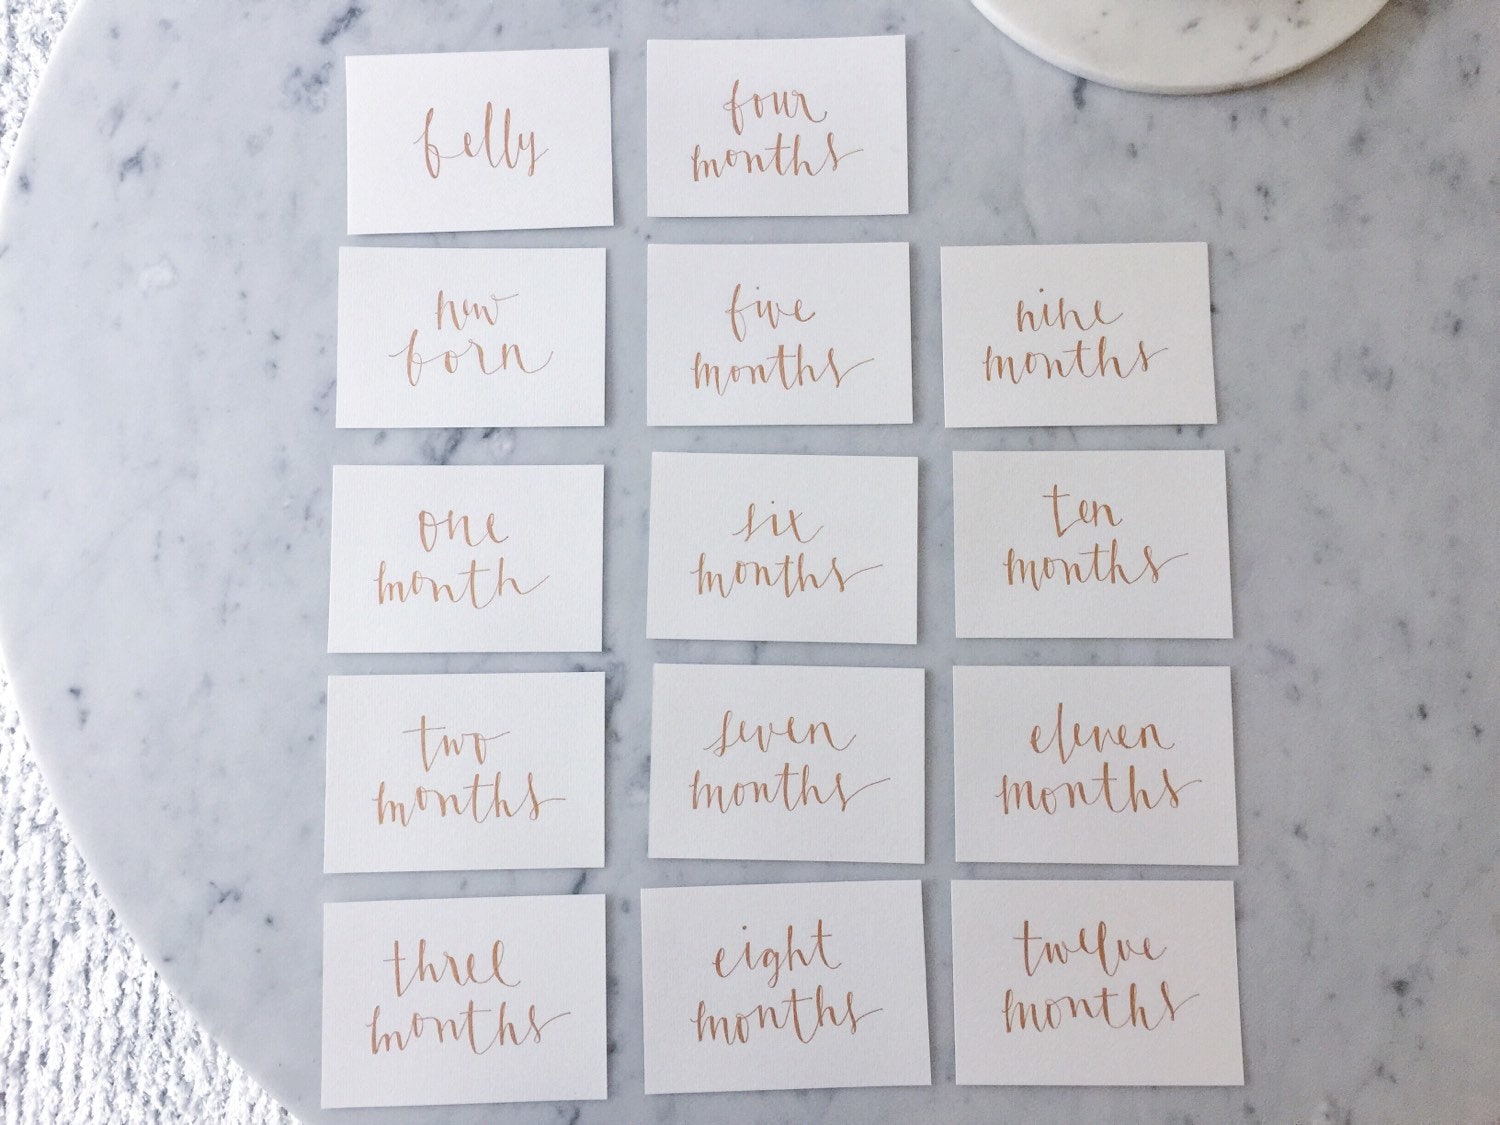 belly
new
born
one
month
two
months
three
months
four
months
five
months
six
months
seven
months
eight
months
nine
months
ten
months
eleven
months
twelve
months